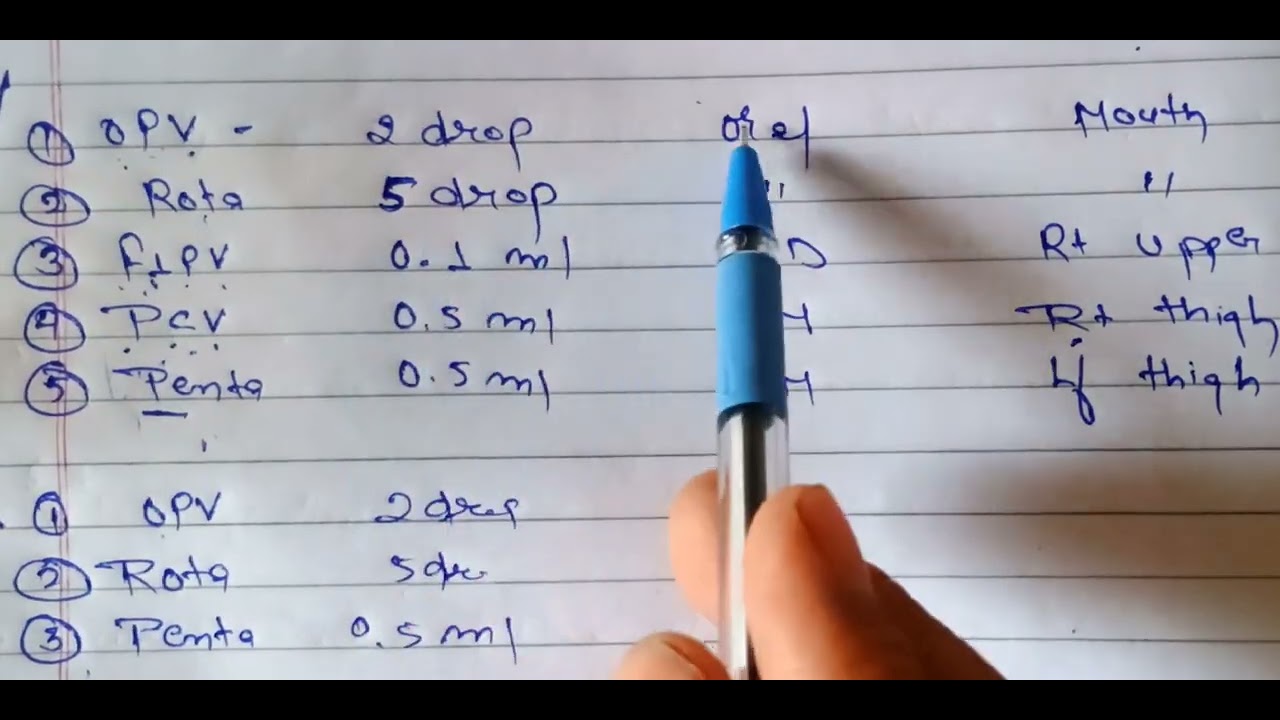 ① OPV - 2 drop oral Mouth
② Rota 5 drop " "
③ fIPV 0.1 ml D Rt Upper
④ PCV 0.5 ml Rt thigh
⑤ Penta 0.5 ml Lf thigh
① OPV 2 drop
② Rota 5 dr
③ Penta 0.5 ml